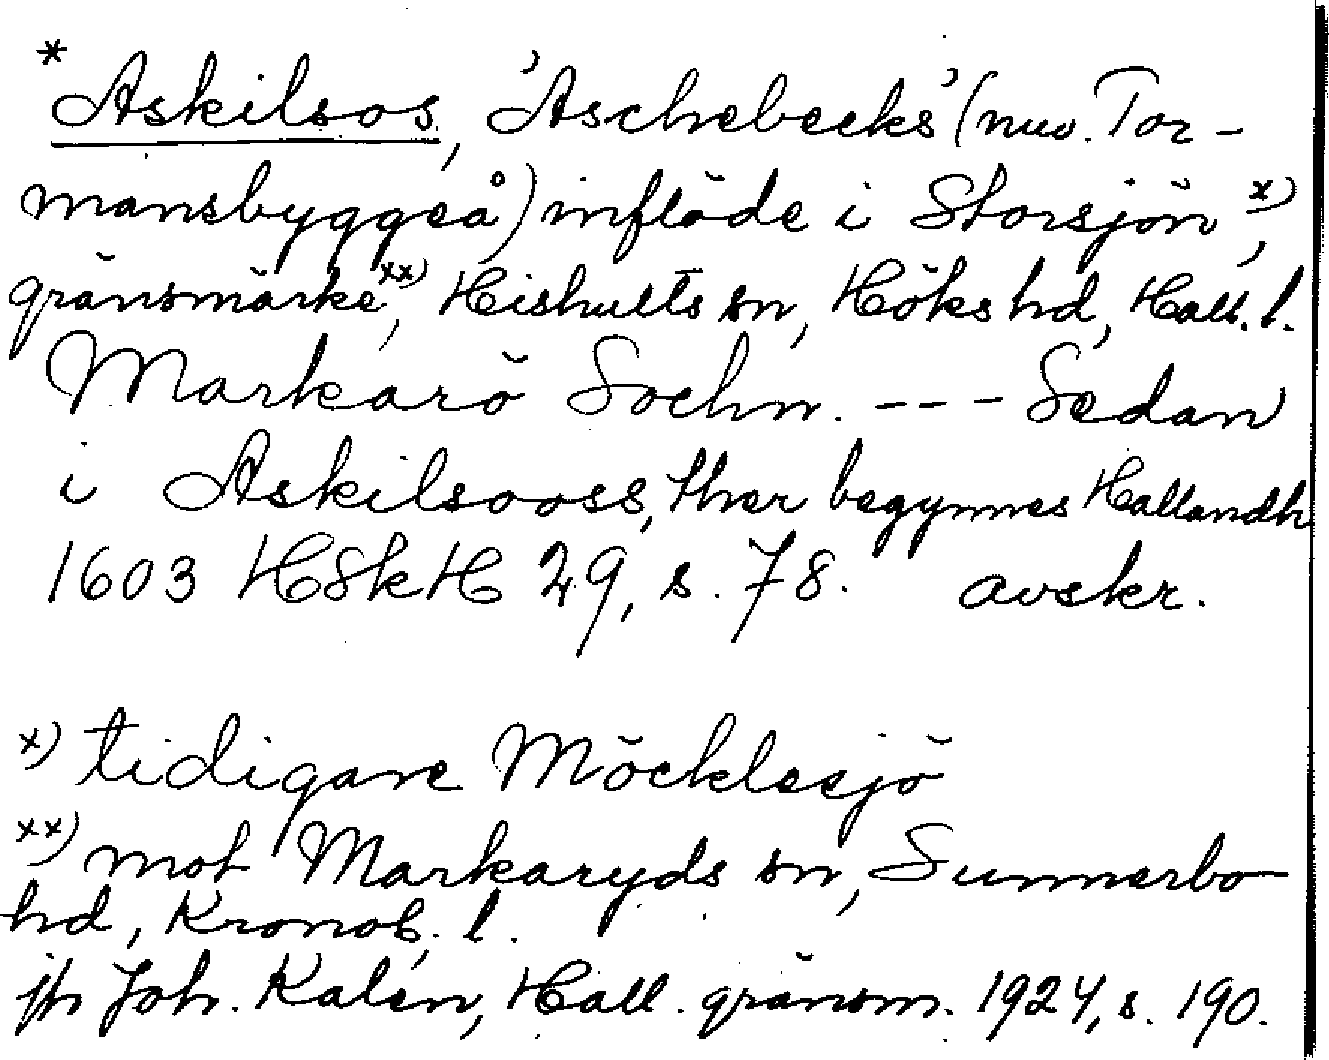 *Askilsos, 'Aschebecks' (nuv. Tor-
mansbyggeå) inflöde i Storsjön x),
gränsmärke xx), Hishults sn, Höks hd, Hall. l.
Markarö Sochn. --- Sedan
i Askilsooss, ther begynnes Hallandh
1603 HSkH 29, s. 78. avskr.
x) tidigare Möcklesjö
xx) mot Markaryds sn, Sunnerbo
hd, Kronob. l.
jfr Joh. Kalén, Hall. gränsm. 1924, s. 190.